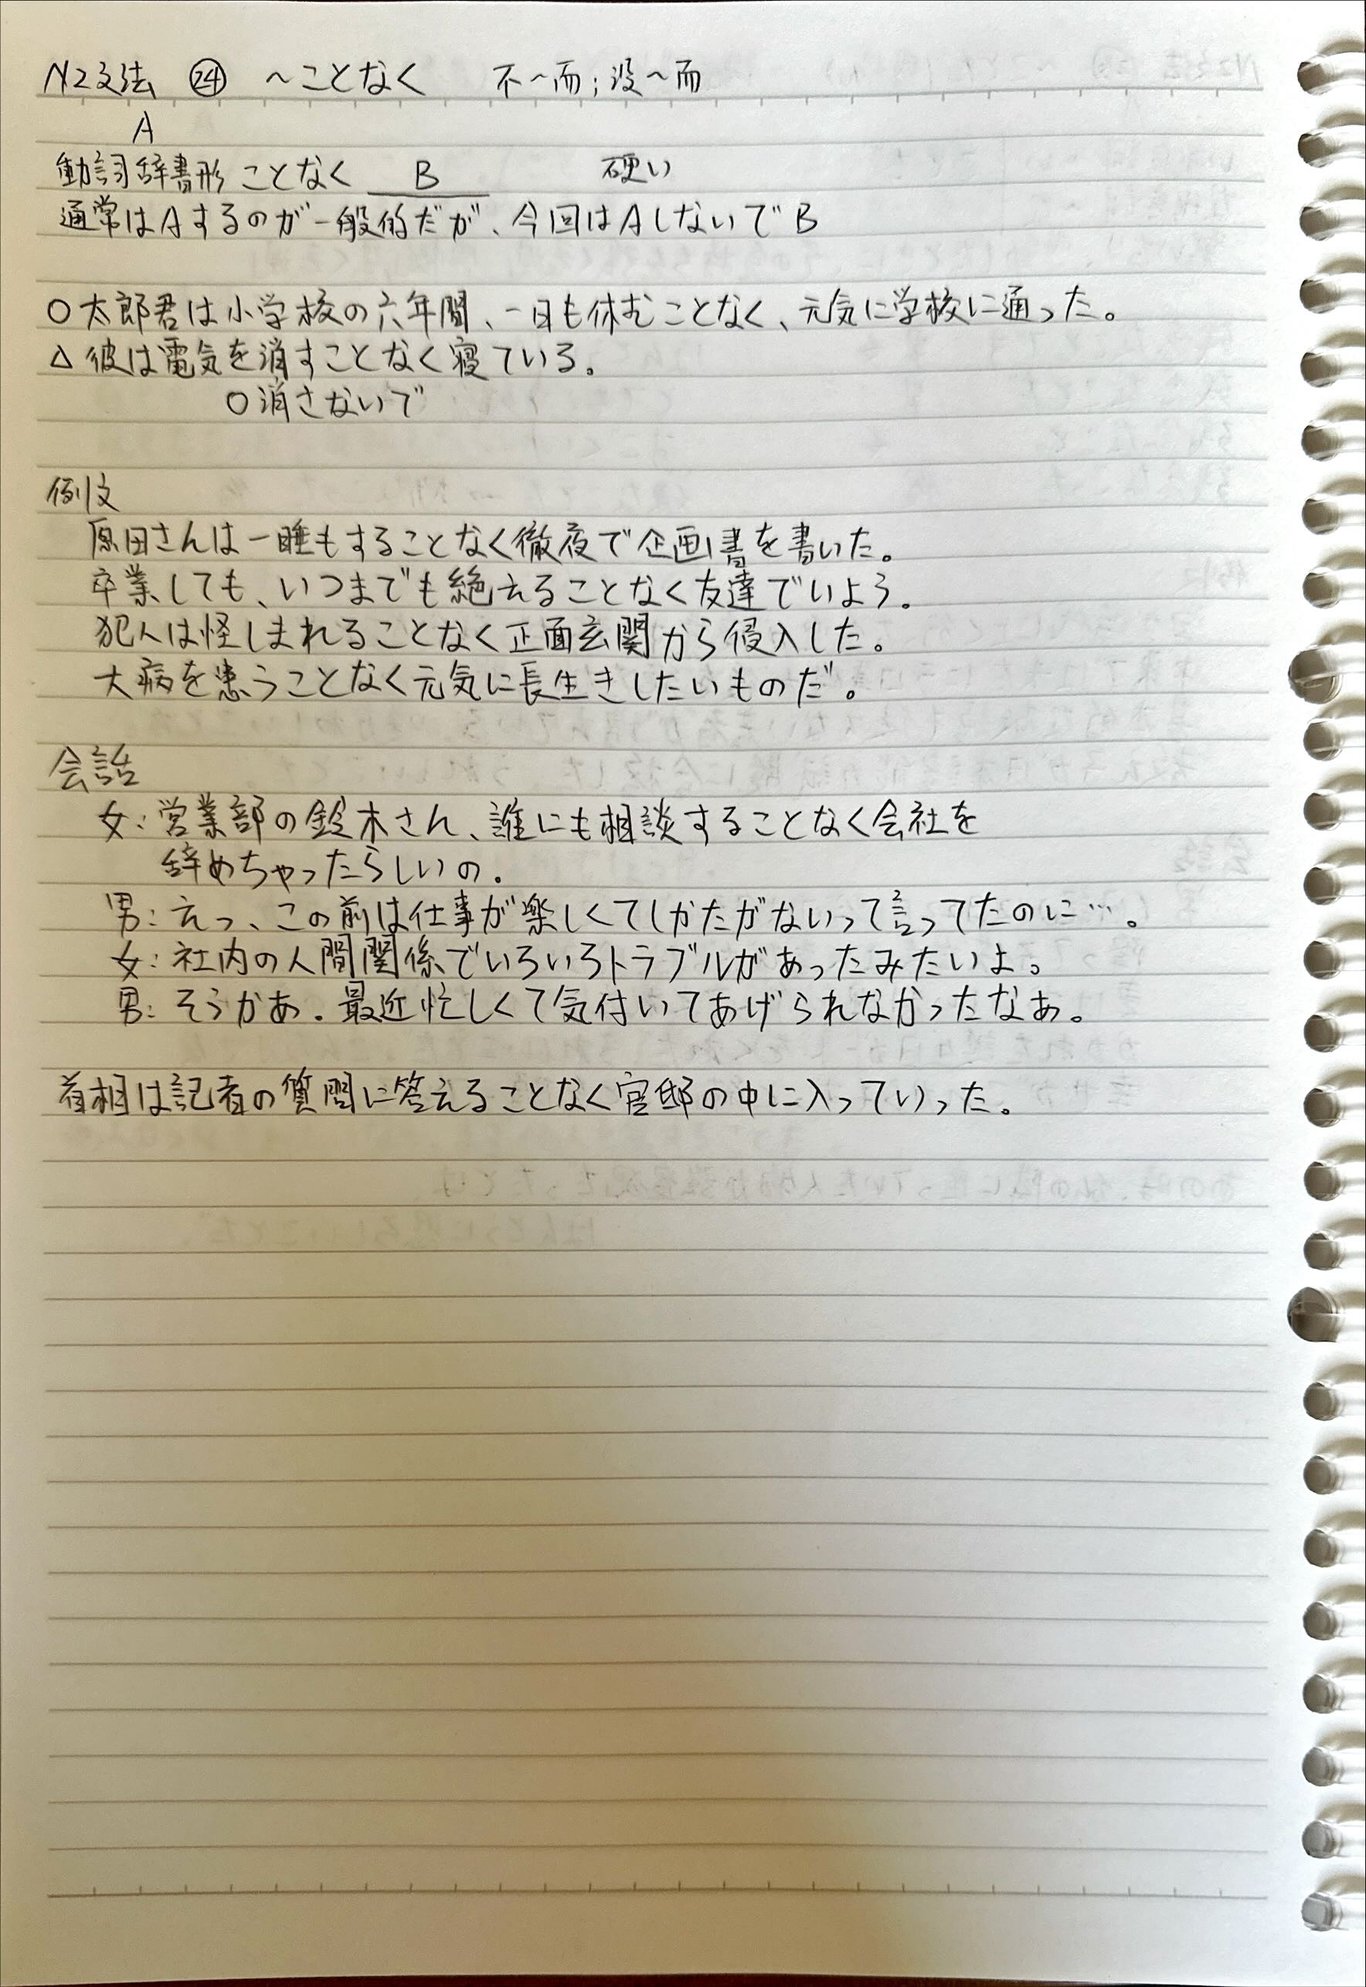 N2文法 ㉔ ～ことなく 不～而；没～而
A
動詞辞書形 ことなく B 硬い
通常はAするのが一般的だが、今回はAしないでB
○太郎君は小学校の六年間、一日も休むことなく、元気に学校に通った。
△彼は電気を消すことなく寝ている。
○消さないで
例文
原田さんは一睡もすることなく徹夜で企画書を書いた。
卒業しても、いつまでも絶えることなく友達でいよう。
犯人は怪しまれることなく正面玄関から侵入した。
大病を患うことなく元気に長生きしたいものだ。
会話
女：営業部の鈴木さん、誰にも相談することなく会社を
辞めちゃったらしいの。
男：えっ、この前は仕事が楽しくてしかたがないって言ってたのに…。
女：社内の人間関係でいろいろトラブルがあったみたいよ。
男：そうかあ。最近忙しくて気付いてあげられなかったなあ。
首相は記者の質問に答えることなく官邸の中に入っていった。